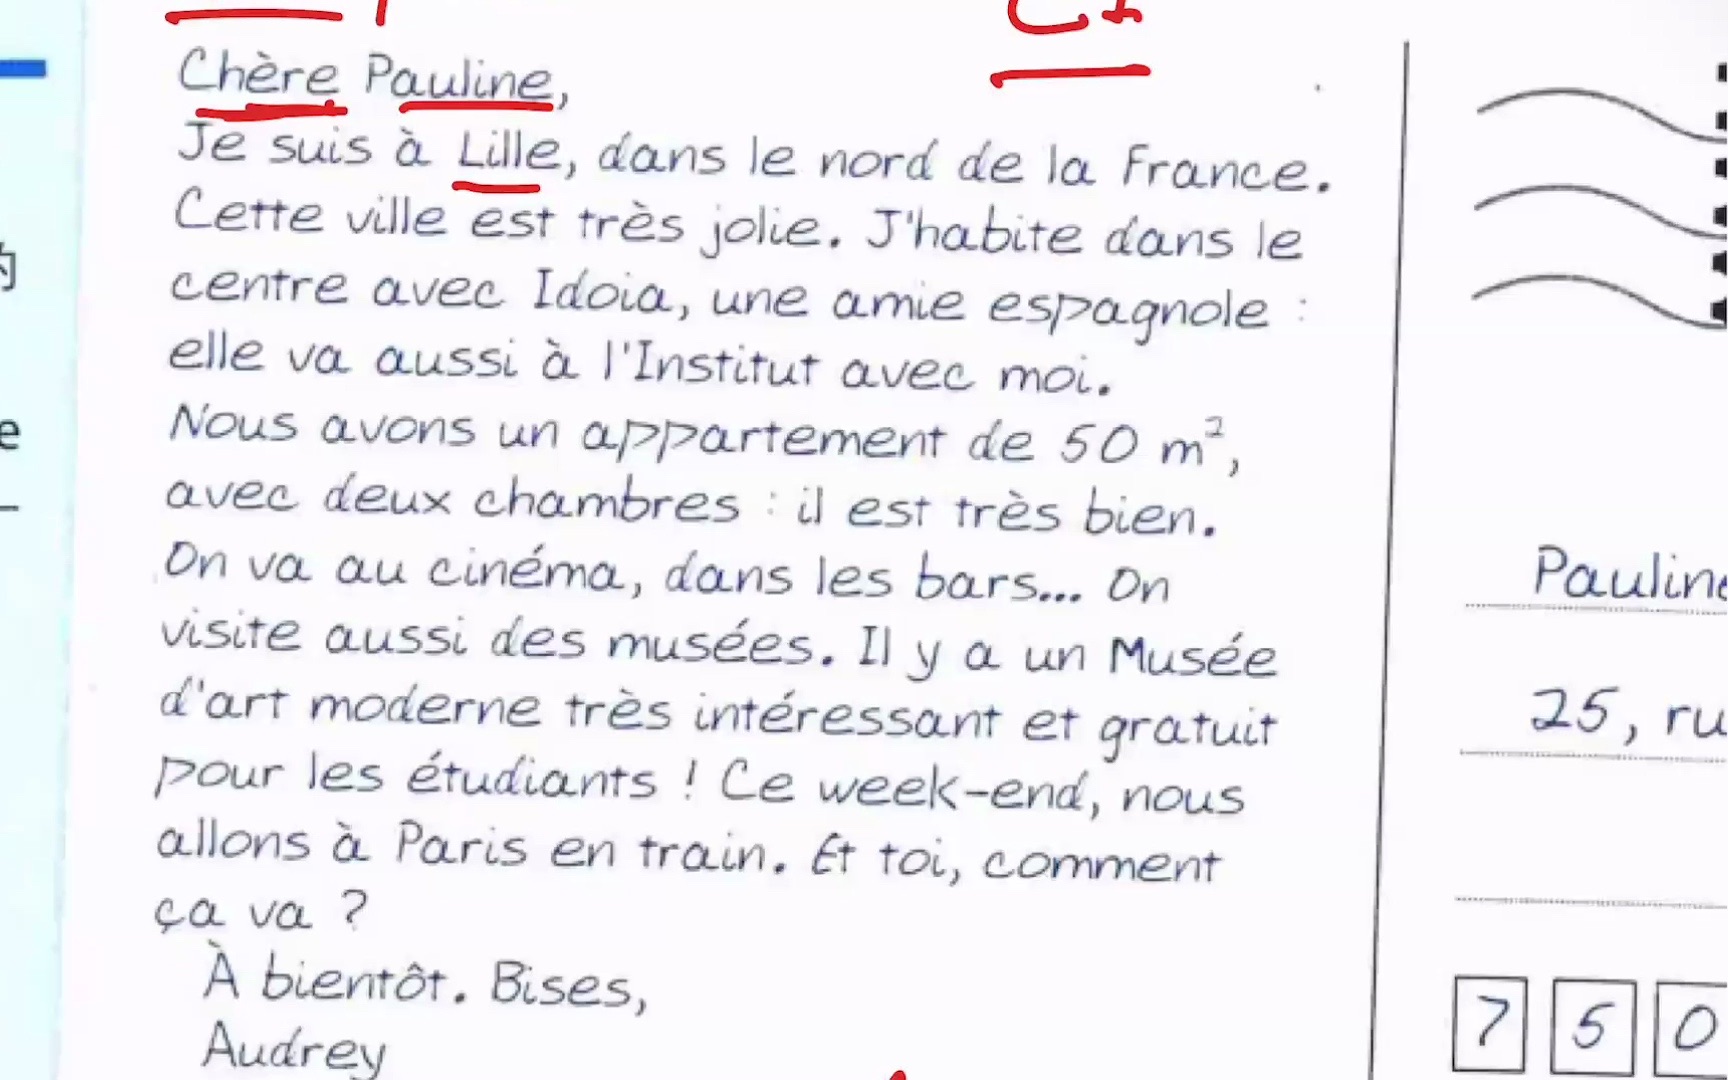 Chère Pauline,
Je suis à Lille, dans le nord de la France.
Cette ville est très jolie. J'habite dans le
centre avec Idoia, une amie espagnole :
elle va aussi à l'Institut avec moi.
Nous avons un appartement de 50 m²,
avec deux chambres : il est très bien.
On va au cinéma, dans les bars... On
visite aussi des musées. Il y a un Musée
d'art moderne très intéressant et gratuit
pour les étudiants ! Ce week-end, nous
allons à Paris en train. Et toi, comment
ça va ?
À bientôt. Bises,
Audrey
的
e
Pauline
25, ru
7 5 0